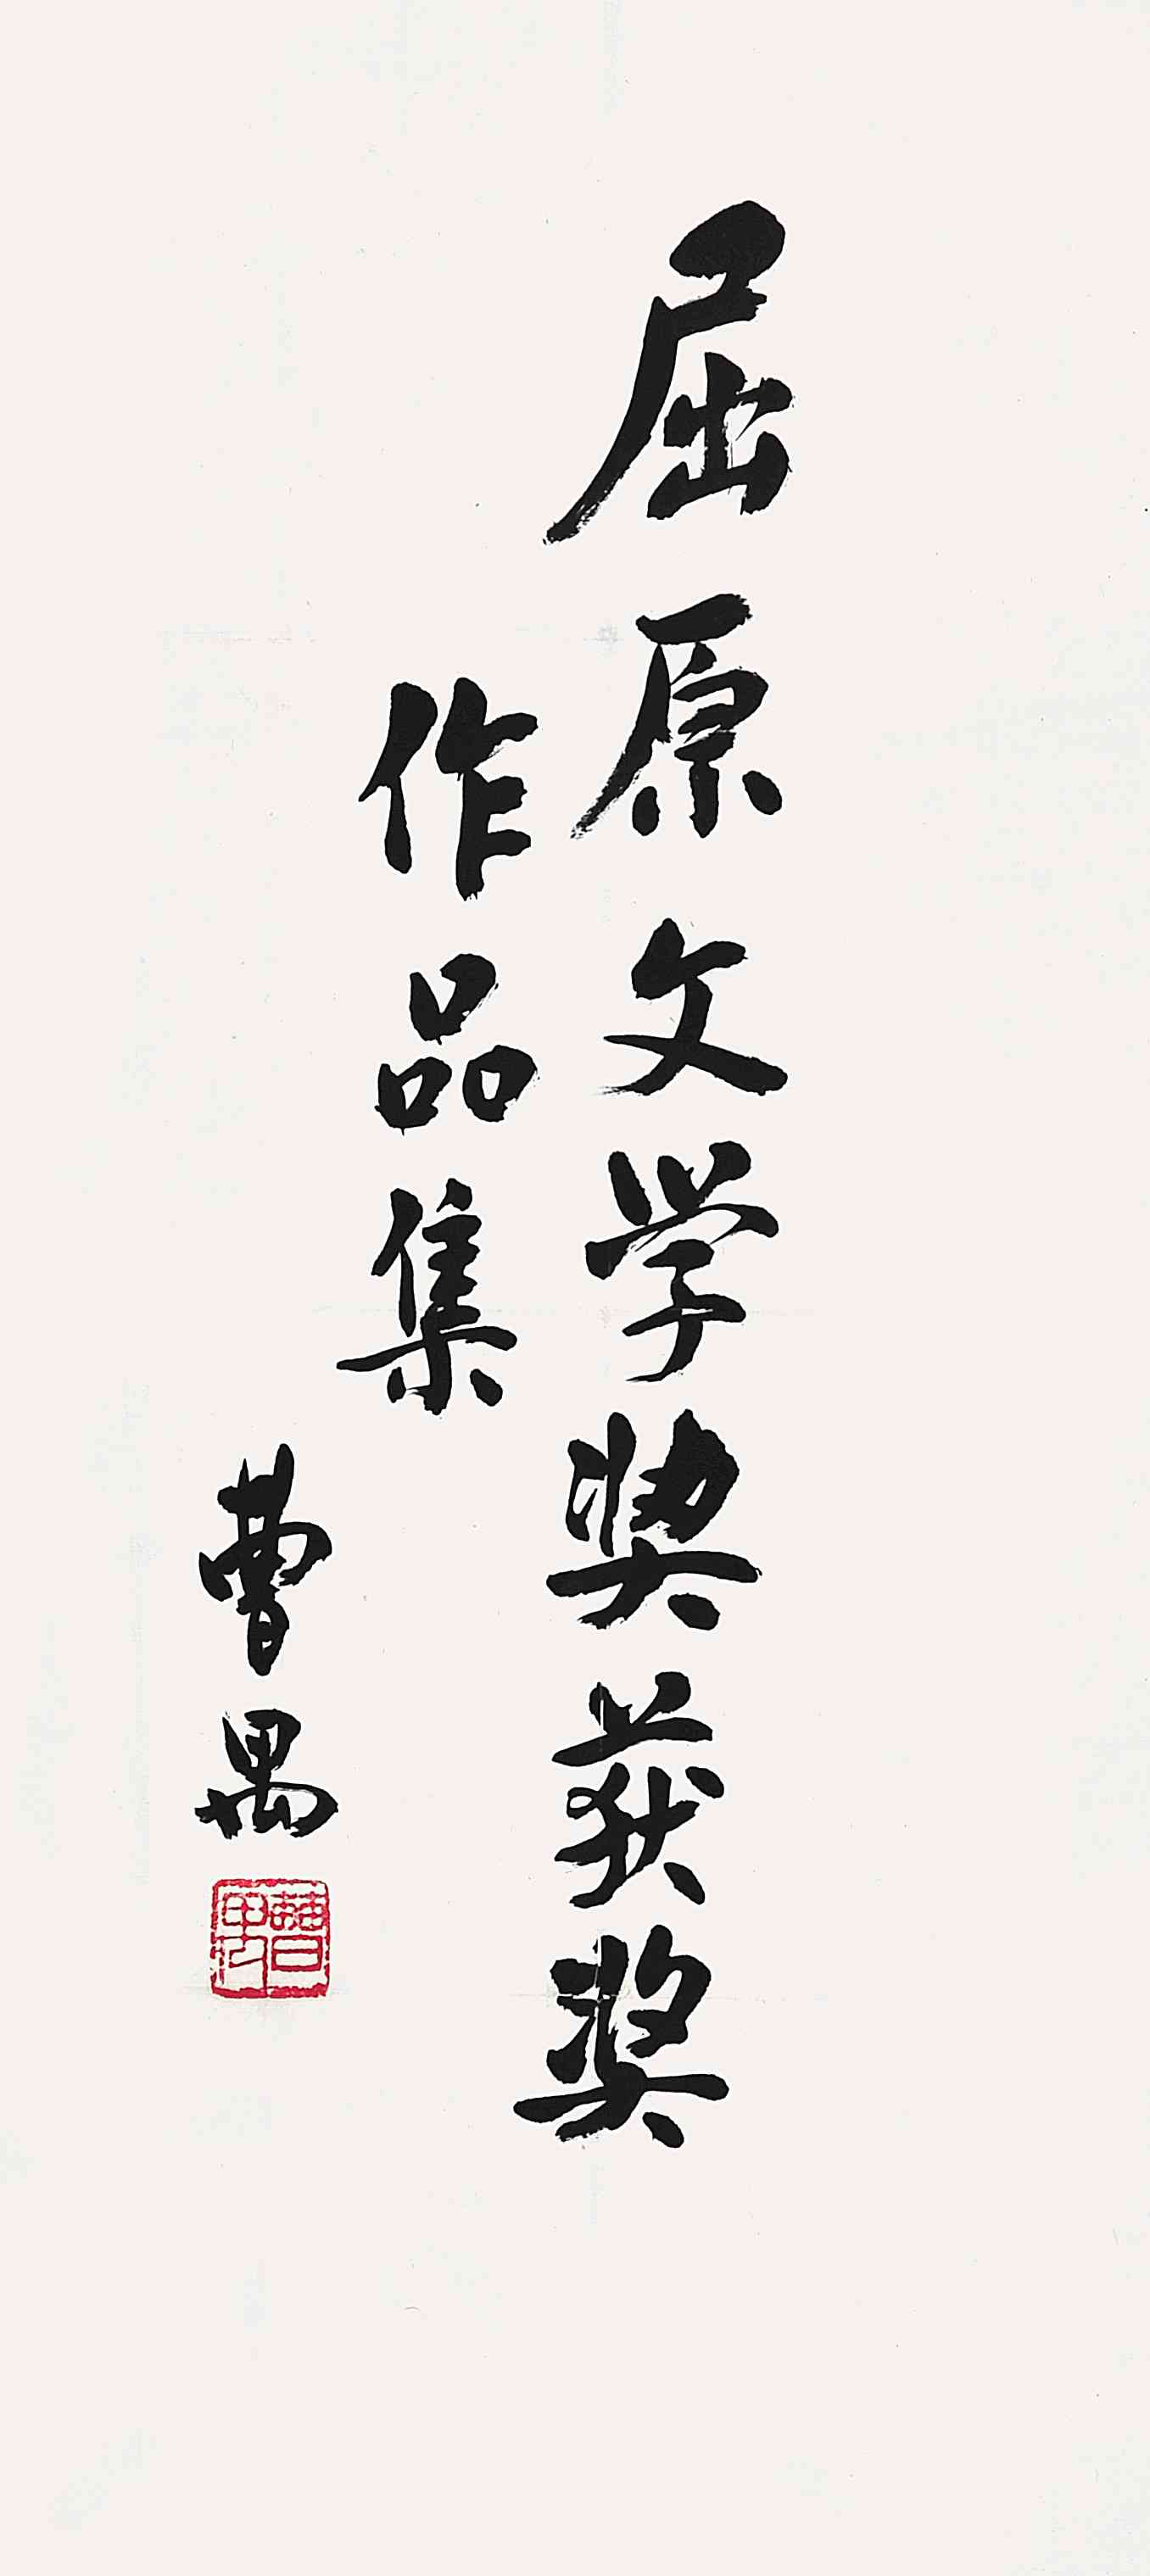 屈原文学奖获奖
作品集
曹禺